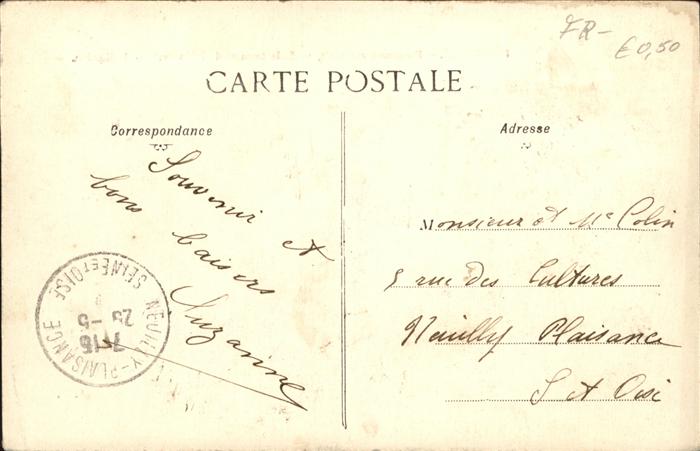 FR-
€0,50
CARTE POSTALE
Correspondance
Adresse
Souvenir et
bons baisers
Suzanne
Monsieur et Me Colin
rue des Cultures
Neuilly Plaisance
S et Oise
NEUILLY-PLAISANCE
SEINE ET OISE
7-15
29-5